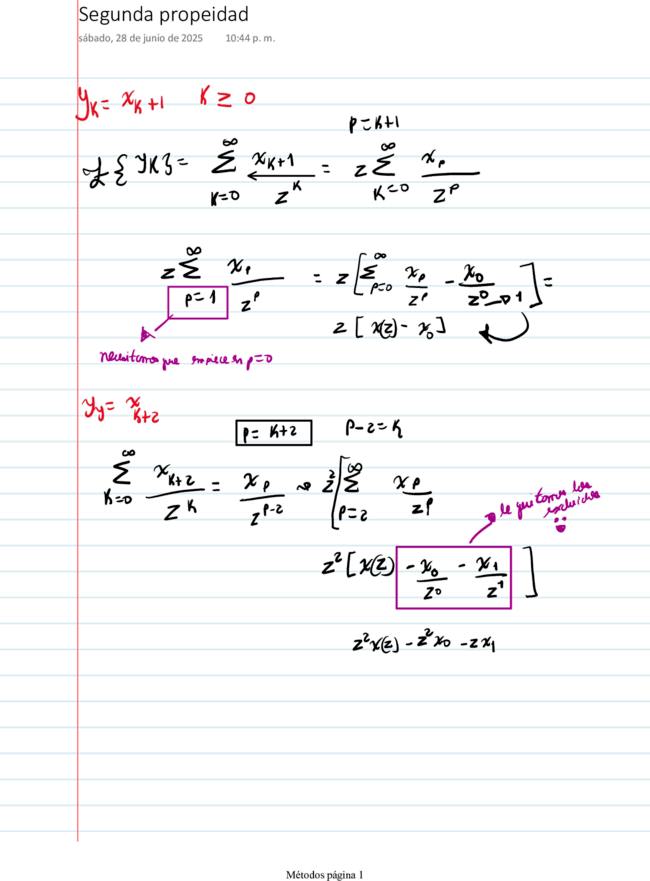 Segunda propeidad
sábado, 28 de junio de 2025 10:44 p. m.
y_K = x_{K+1} K ≥ 0
p = K+1
Z{y_K} = ∑_{K=0}^{∞} x_{K+1} / z^K = z ∑_{K=0}^{∞} x_p / z^p
z ∑_{p=1}^{∞} x_p / z^p = z [ ∑_{p=0}^{∞} x_p / z^p - x_0 / z^0 → 1 ] =
z [ x(z) - x_0 ]
necesitamos que empiece en p=0
y_y = x_{K+2}
p = K+2 p-2 = K
∑_{K=0}^{∞} x_{K+2} / z^K = x_p / z^{p-2} → z^2 [ ∑_{p=2}^{∞} x_p / z^p
le quitamos los excluidos
z^2 [ x(z) - x_0 / z^0 - x_1 / z^1 ]
z^2 x(z) - z^2 x_0 - z x_1
Métodos página 1